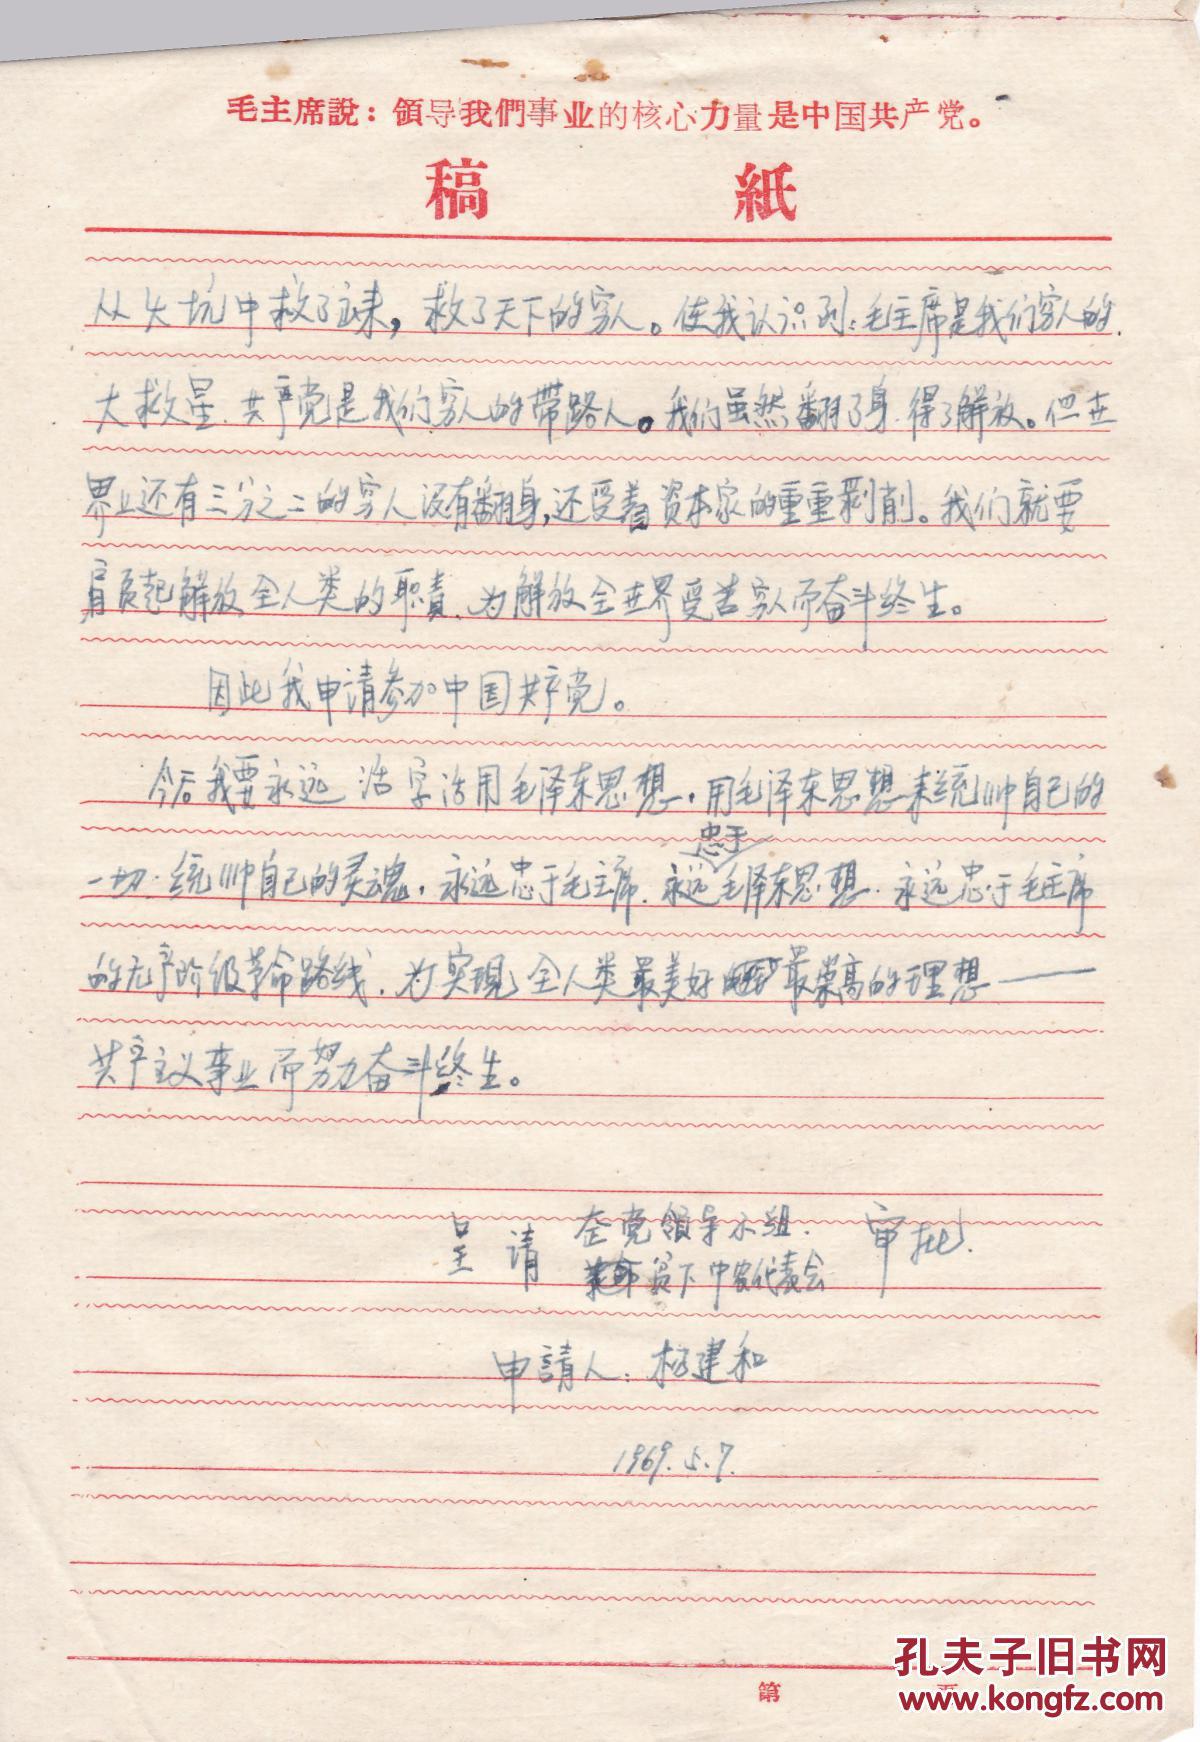 毛主席說：領导我們事业的核心力量是中国共产党。
稿 紙
从火坑中救了出来，救了天下的穷人。使我认识到：毛主席是我们穷人的
大救星、共产党是我们穷人的带路人。我们虽然翻了身、得了解放。但世
界上还有三分之二的穷人没有翻身，还受着资本家的重重剥削。我们就要
肩负起解放全人类的职责、为解放全世界受苦穷人而奋斗终生。
因此我申请参加中国共产党。
今后我要永远 活学活用毛泽东思想，用毛泽东思想来统帅自己的
一切、统帅自己的灵魂，永远忠于毛主席、永远忠于毛泽东思想、永远忠于毛主席
的无产阶级革命路线、为实现全人类最美好最崇高的理想——
共产主义事业而努力奋斗终生。
呈请 整党领导小组、 审批、
贫下中农代表会
申請人：杨建和
1969.5.7.
第 页
孔夫子旧书网
www.kongfz.com